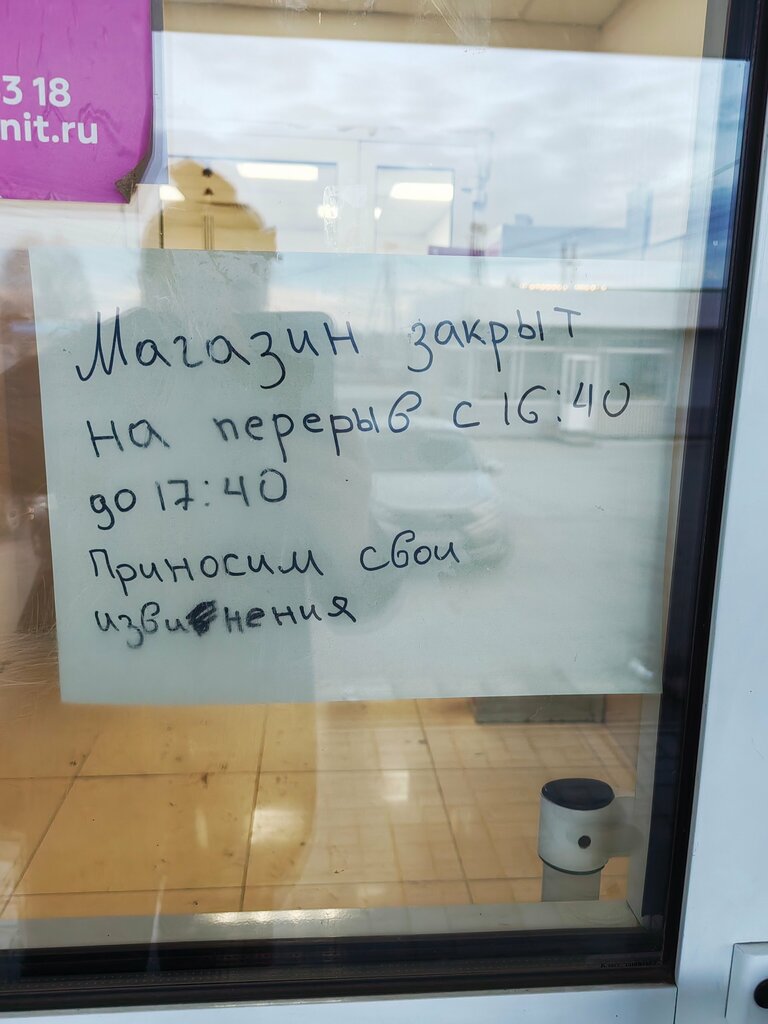 3 18
nit.ru
Магазин закрыт
на перерыв с 16:40
до 17:40
Приносим свои
извинения